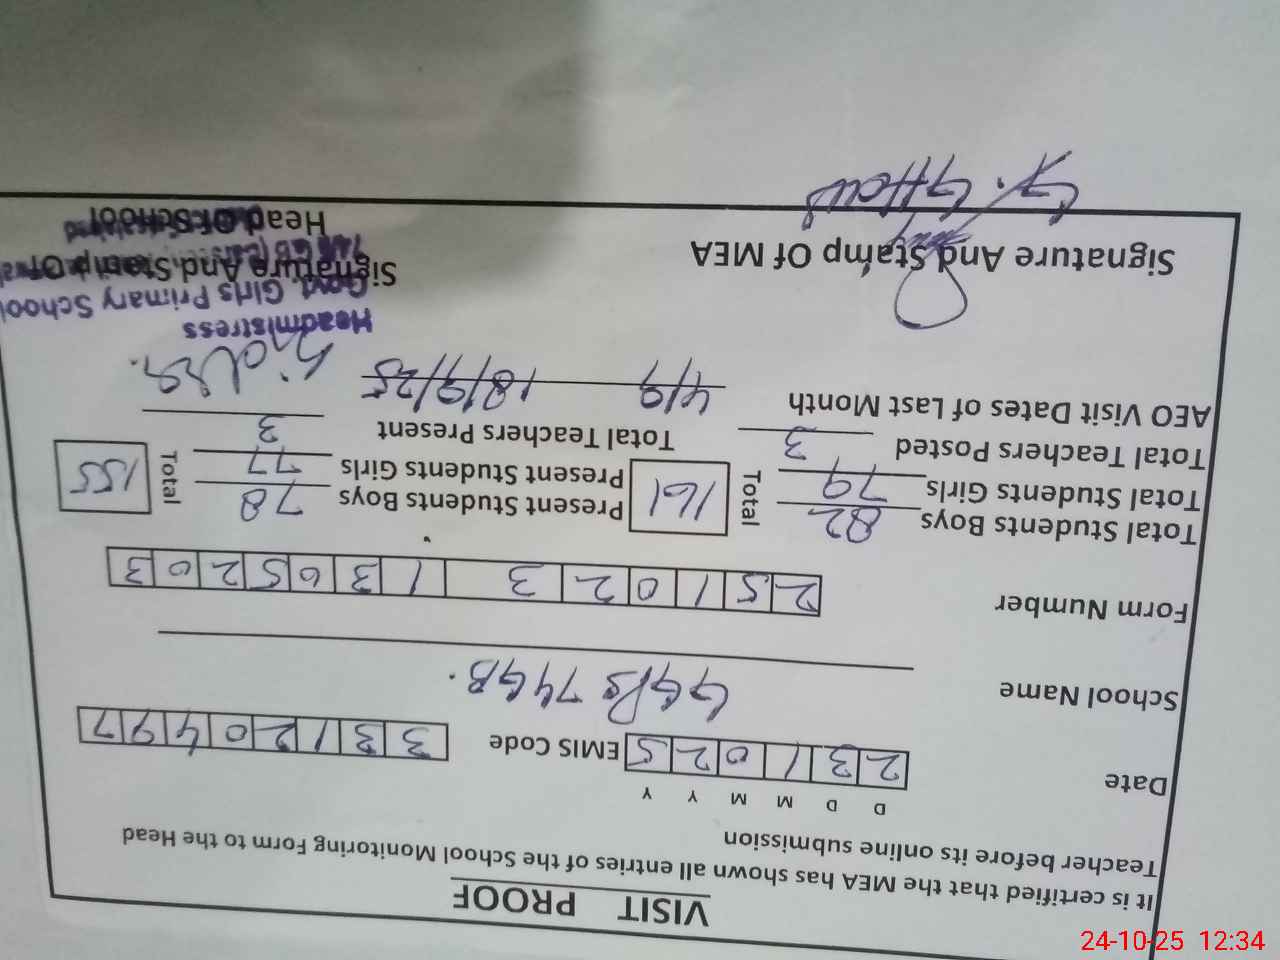 VISIT PROOF
It is certified that the MEA has shown all entries of the School Monitoring Form to the Head
Teacher before its online submission
D D M M Y Y
Date 2 3 1 0 2 5 EMIS Code 3 3 1 2 0 4 9 7
School Name GGPS 74 GB.
Form Number 2 5 1 0 2 3 1 3 0 5 2 0 3
Total Students Boys 82 Total 161 Present Students Boys 78 Total 155
Total Students Girls 79 Present Students Girls 77
Total Teachers Posted 3 Total Teachers Present 3
AEO Visit Dates of Last Month 4/9 18/9/25
Headmistress
Govt. Girls Primary School
Signature And Stamp Of MEA
Signature And Stamp Of
Head Of School
24-10-25 12:34